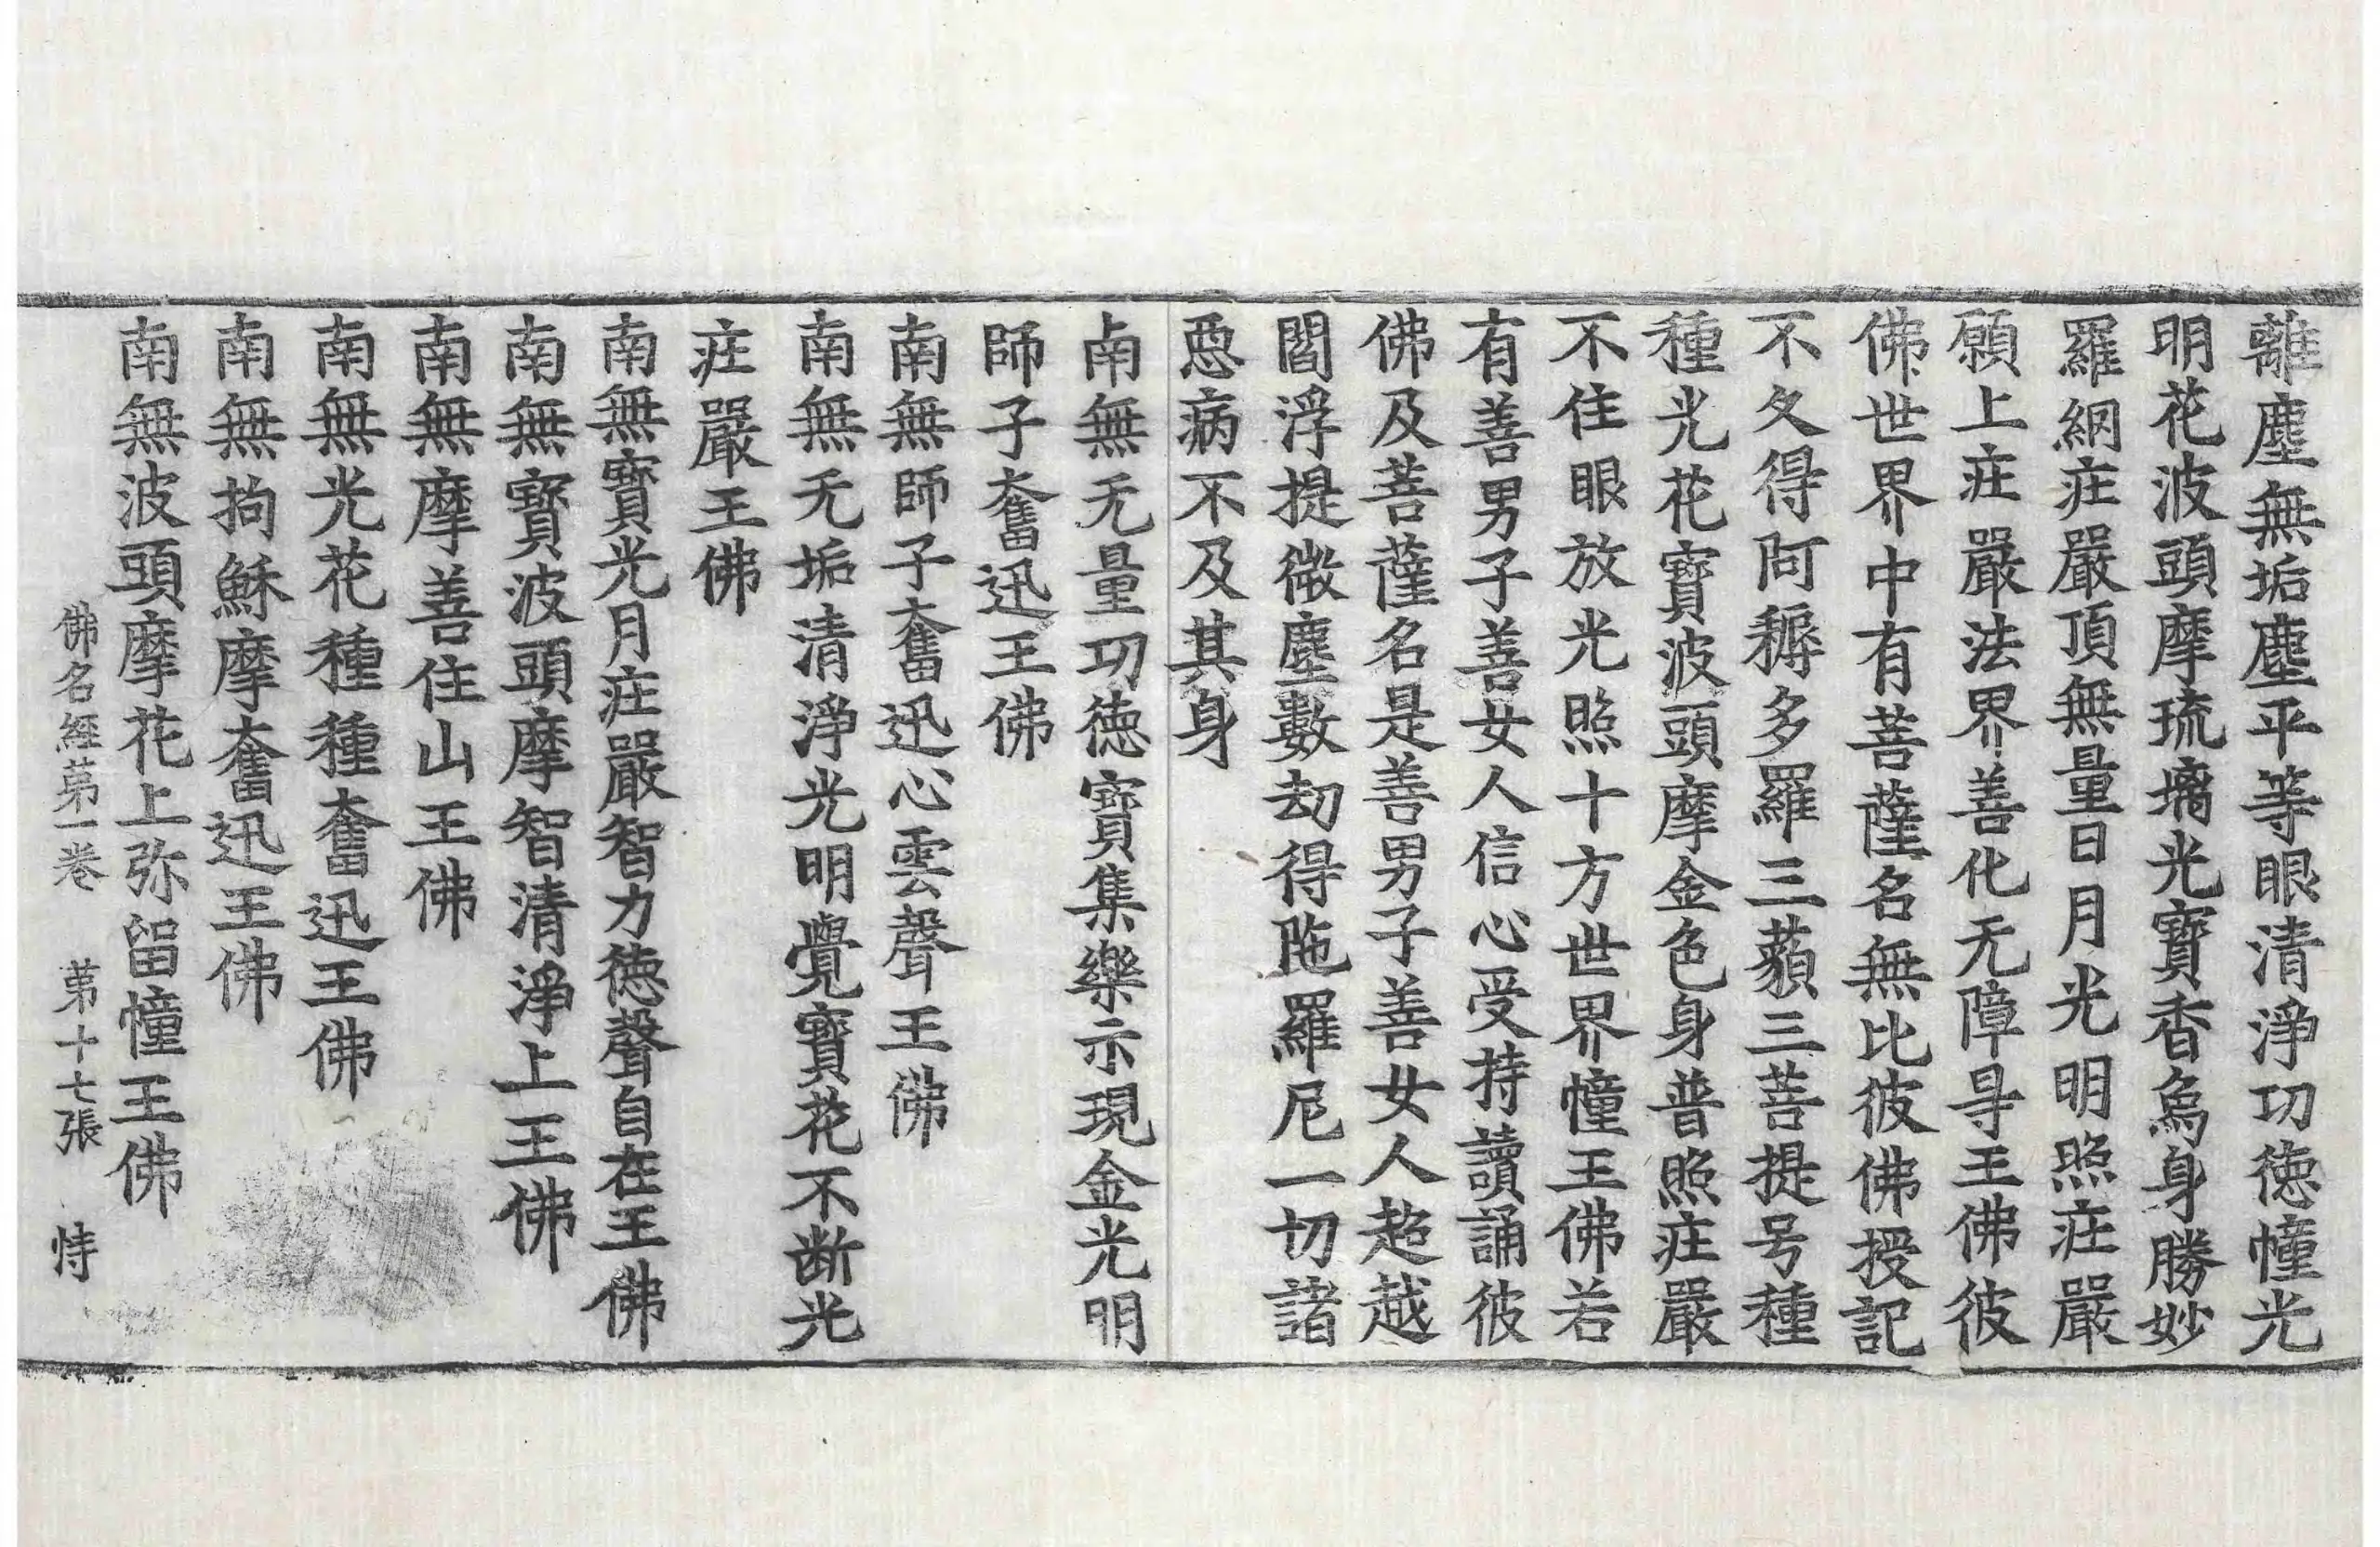 離塵無垢塵平等眼清淨功德幢光
明花波頭摩琉璃光寶香烏身勝妙
羅網疘嚴頂無量日月光明照疘嚴
願上疘嚴法界善化无障㝵王佛彼
佛世界中有菩薩名無比彼佛授記
不久得阿耨多羅三藐三菩提号種
種光花寶波頭摩金色身普照疘嚴
不住眼放光照十方世界幢王佛若
有善男子善女人信心受持讀誦彼
佛及菩薩名是善男子善女人超越
閻浮提微塵數劫得陁羅尼一切諸
惡病不及其身
南無无量功德寶集樂示現金光明
師子奮迅王佛
南無師子奮迅心雲聲王佛
南無无垢清淨光明覺寶花不断光
疘嚴王佛
南無寶光月疘嚴智力德聲自在王佛
南無寶波頭摩智清淨上王佛
南無摩善住山王佛
南無光花種種奮迅王佛
南無拘穌摩奮迅王佛
南無波頭摩花上弥留幢王佛
佛名經第一卷 第十七張 恃